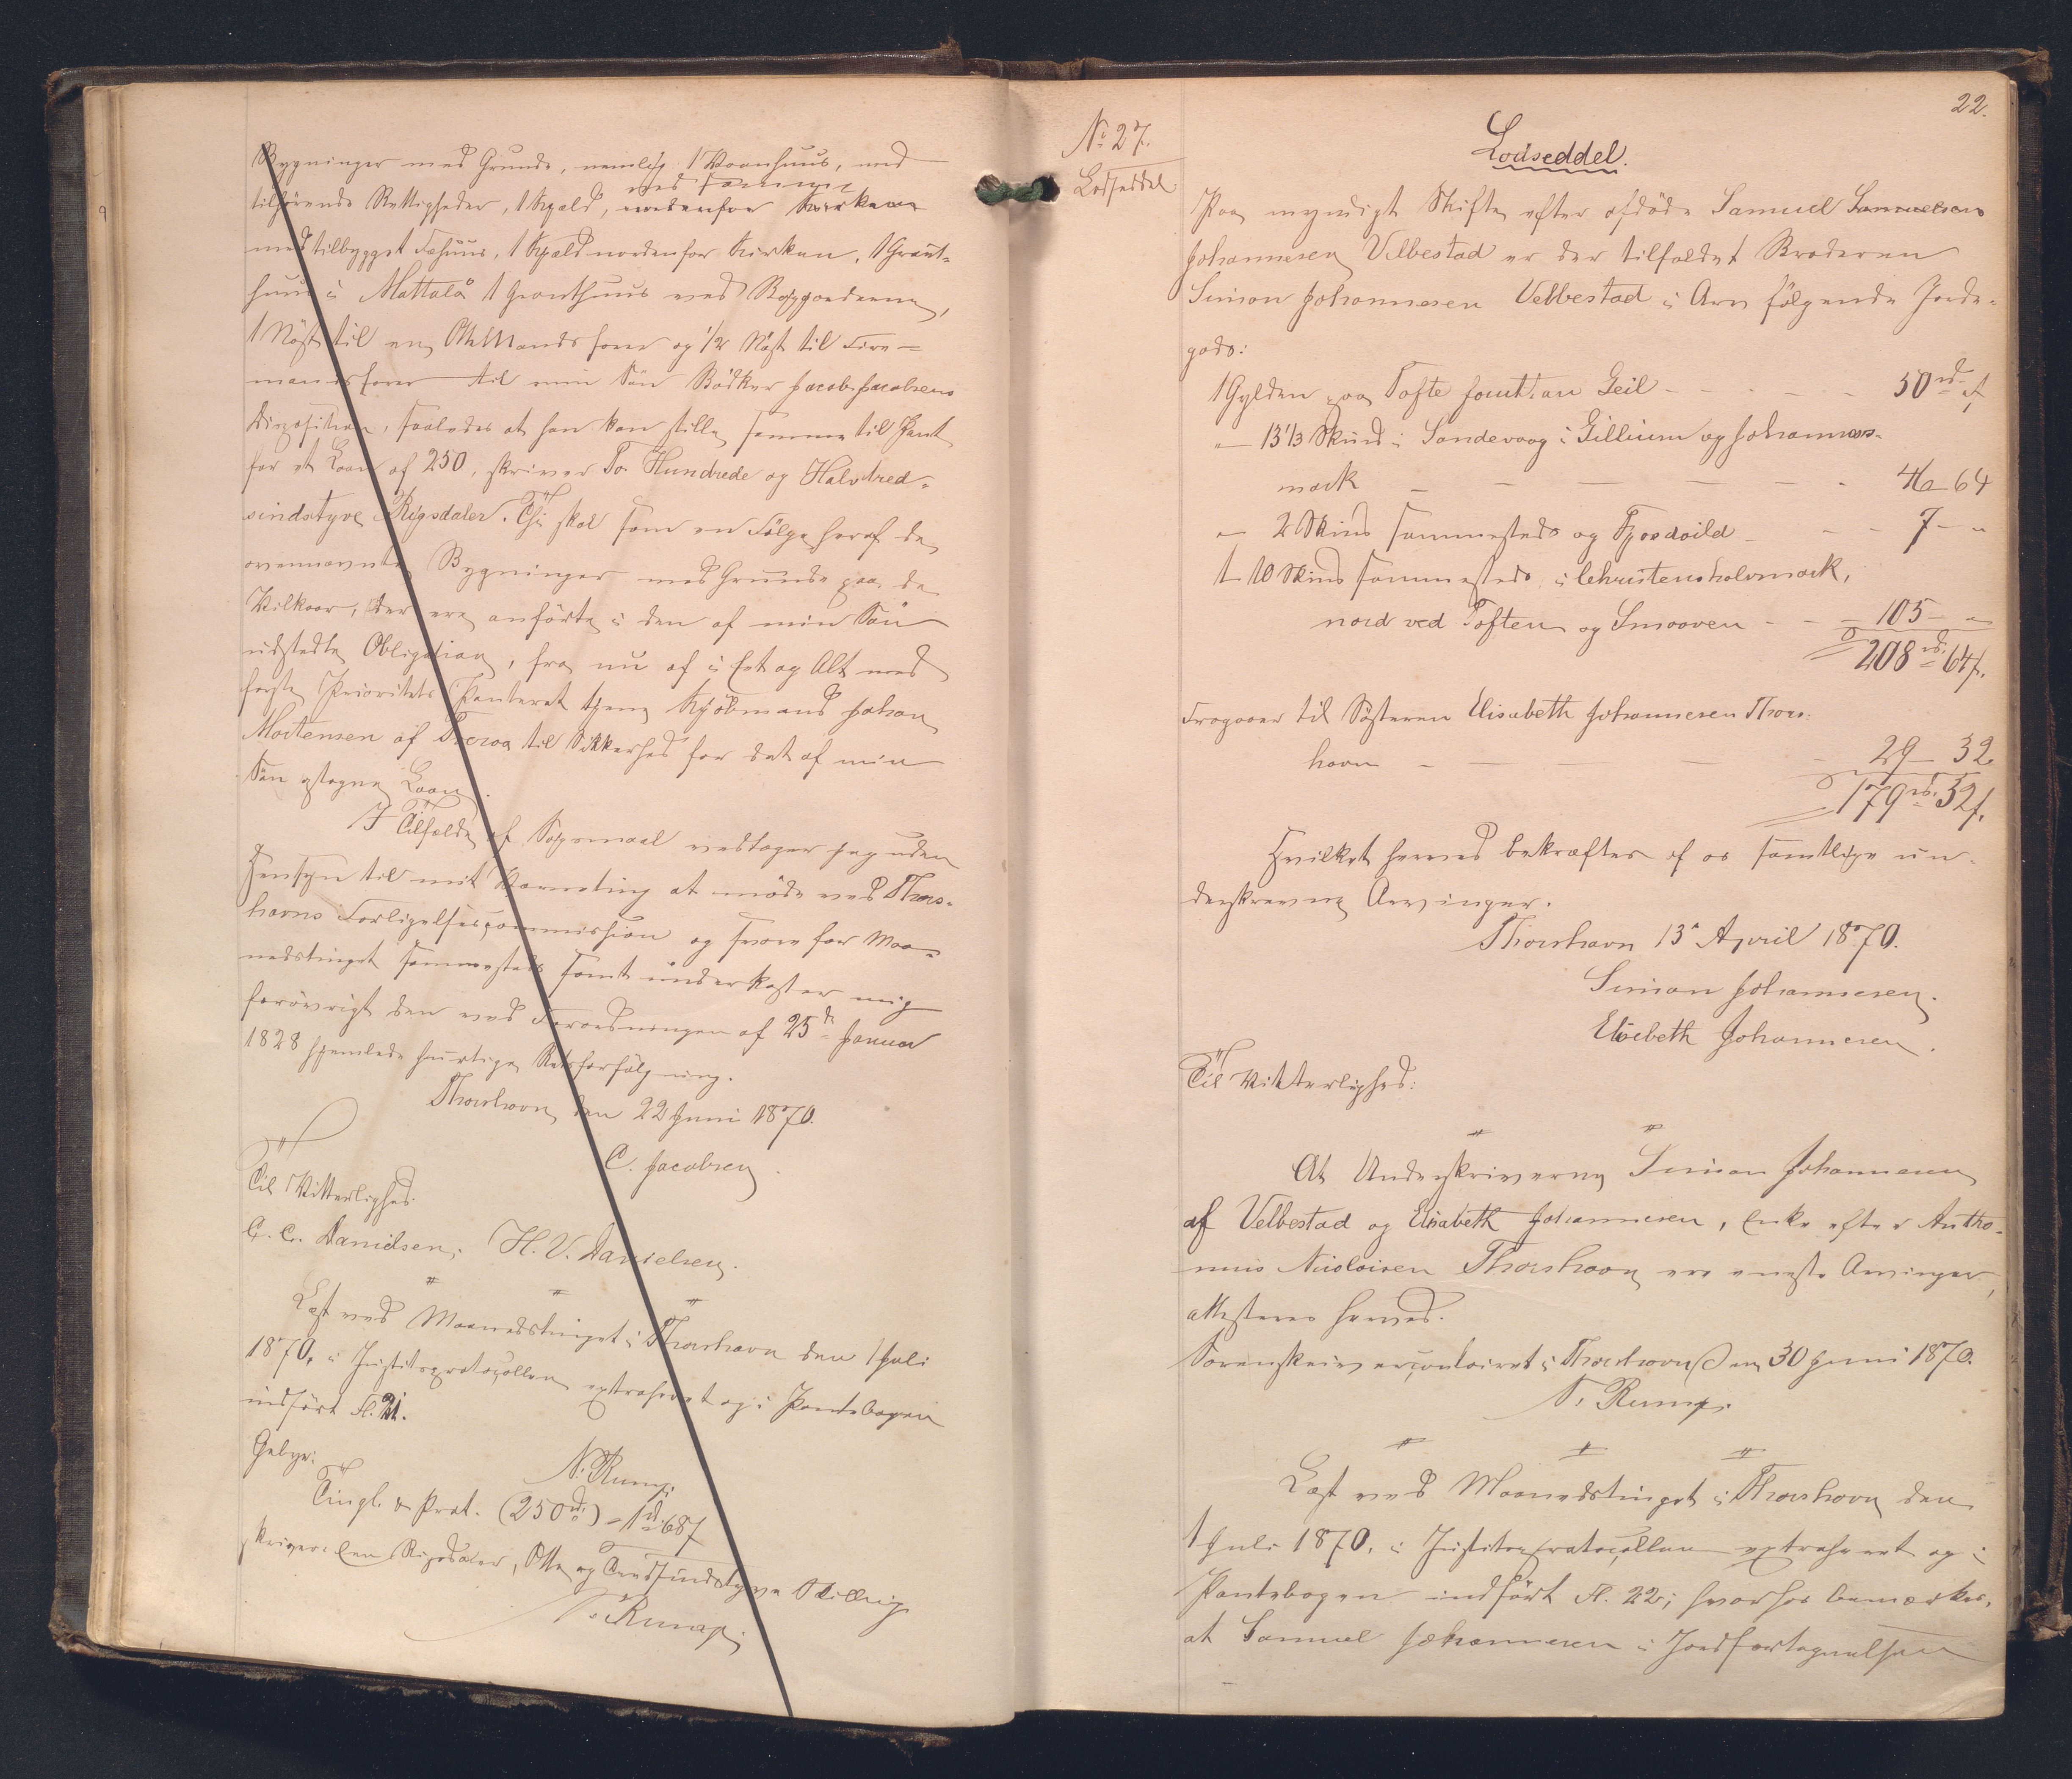 Bygninger med Grunde, nemlig 1 Vaanhuus, med
ved samme
tilhørende Rettigheder, 1 Hjald, nordenfor Kirken
med tilbygget Fæhuus, 1 Hjald nordenfor Kirken, 1 Grout-
huus i Mattalå 1 Grouthuus ved Bøggjarderne,
1 Nøst til en Ottemandsfarer og 1/2 Nøst til Fire-
mandsfarer til min Søn Bødker Jacob Jacobsens
Disposition, saaledes at han kan stille samme til Pant
for et Laan af 250, skriver To Hundrede og Halvtred-
sindstyve Rigsdaler. Thi skal som en Følge heraf de
ovennævnte Bygninger med Grunde paa de
Vilkaar, der ere anførte i den af min Søn
udstedte Obligation, fra nu af i Eet og Alt med
første Prioritets Panteret tjene Kjøbmand Johan
Mortensen af Tveraa til Sikkerhed for det af min
Søn optagne Laan.
I Tilfælde af Søgsmaal vedtager jeg uden
Hensyn til mit Værneting at møde ved Thors-
havns Forligelsescommission og svare for Maa-
nedstinget sammesteds samt underkaster mig
forøvrigt den ved Forordningen af 25de Januar
1828 hjemlede hurtige Retsforfølgning.
Thorshavn, den 22 Juni 1870.
C. Jacobsen.
Til Vitterlighed:
C. C. Danielsen. H. V. Danielsen.
Læst ved Maanedstinget i Thorshavn den 1 Juli
1870, i Justitsprotocollen extraheret og i Pantebogen
indført fl. 21.
Gebyr:
N. Rump.
Tingl. & Prot. (250 rd.) = 1 rd. 68 f
skriver: Een Rigsdaler, Otte og Tredsindstyve Skilling
N. Rump.
22.
No 27.
Lodseddel
Lodseddel.
Paa myndigt Skifte efter afdøde Samuel Samuelsen
Johannesen Velbestad er der tilfaldet Broderen
Simon Johannesen Velbestad i Arv følgende Jorde-
gods:
1 Gylden paa Tofte Geil - 50 rd f
" - 13 1/3 Skind i Sandevaag i Gillium og Johannes-
mark - 46 - 64
" - 2 Skind sammesteds og - 7 - "
1 - 10 Skind sammesteds i Christenshalvmark,
nord ved Toften og Smooven - 105 - "
208 rd. 64 f.
Fragaaer til Søsteren Elisabeth Johannesen Thors-
havn - 29 - 32
179 rd. 32 f.
Hvilket herved bekræftes af os samtlige un-
derskrevne Arvinger.
Thorshavn 13de April 1870.
Simon Johannesen.
Elisebeth Johannesen.
Til Vitterlighed:
At Underskriverne Simon Johannesen
af Velbestad og Elisabeth Johannesen, Enke efter Antho-
nius Nicolaisen Thorshavn ere eneste Arvinger,
attesteres herved.
Sorenskrivercontoiret i Thorshavn den 30 Juni 1870.
N. Rump.
Læst ved Maanedstinget i Thorshavn den
1 Juli 1870, i Justitsprotocollen extraheret og i
Pantebogen indført fl. 22; hvorhos bemærkes,
at Samuel Johannesen i Jordfortegnelsen